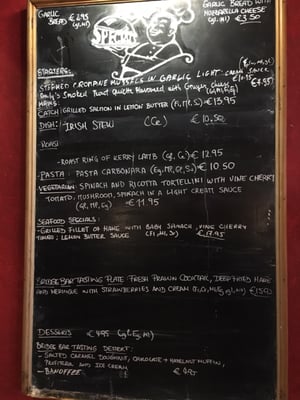 GARLIC
BREAD € 2.95
GARLIC BREAD WITH
MOZZARELLA CHEESE
€3.50
SPECIALS
STARTERS:
STEAMED CROMANE MUSSELS IN GARLIC LIGHT CREAM SAUCE
Smoked Trout Quiche Flavoured with Gruyere Cheese €7.95
MAINS:
CATCH: GRILLED SALMON IN LEMON BUTTER (Fi, Mi, Su) €13.95
DISH: IRISH STEW (Ce) € 10.50
ROAST
- ROAST RING OF KERRY LAMB (gl, Ce) € 12.95
- PASTA: PASTA CARBONARA (Eg, Mi, gl, Su) € 10.50
VEGETARIAN: SPINACH AND RICOTTA TORTELLINI WITH VINE CHERRY
TOMATO, MUSHROOM, SPINACH IN A LIGHT CREAM SAUCE
(gl, Mi, Eg) € 11.95
SEAFOOD SPECIALS:
- GRILLED FILLET OF HAKE WITH BABY SPINACH, VINE CHERRY
TOMATO, LEMON BUTTER SAUCE (Fi, Mi, Su) €17.95
BRIDGE BAR TASTING PLATE FRESH PRAWN COCKTAIL, DEEP FRIED HAKE
AND MERINGUE WITH STRAWBERRIES AND CREAM
DESSERTS € 4.95 (gl, Eg, Mi)
BRIDGE BAR TASTING DESSERT:
- SALTED CARAMEL DOUGHNUT, CHOCOLATE + HAZELNUT MUFFIN,
PROFITEROL AND ICE CREAM
- BANOFFEE € 4.95